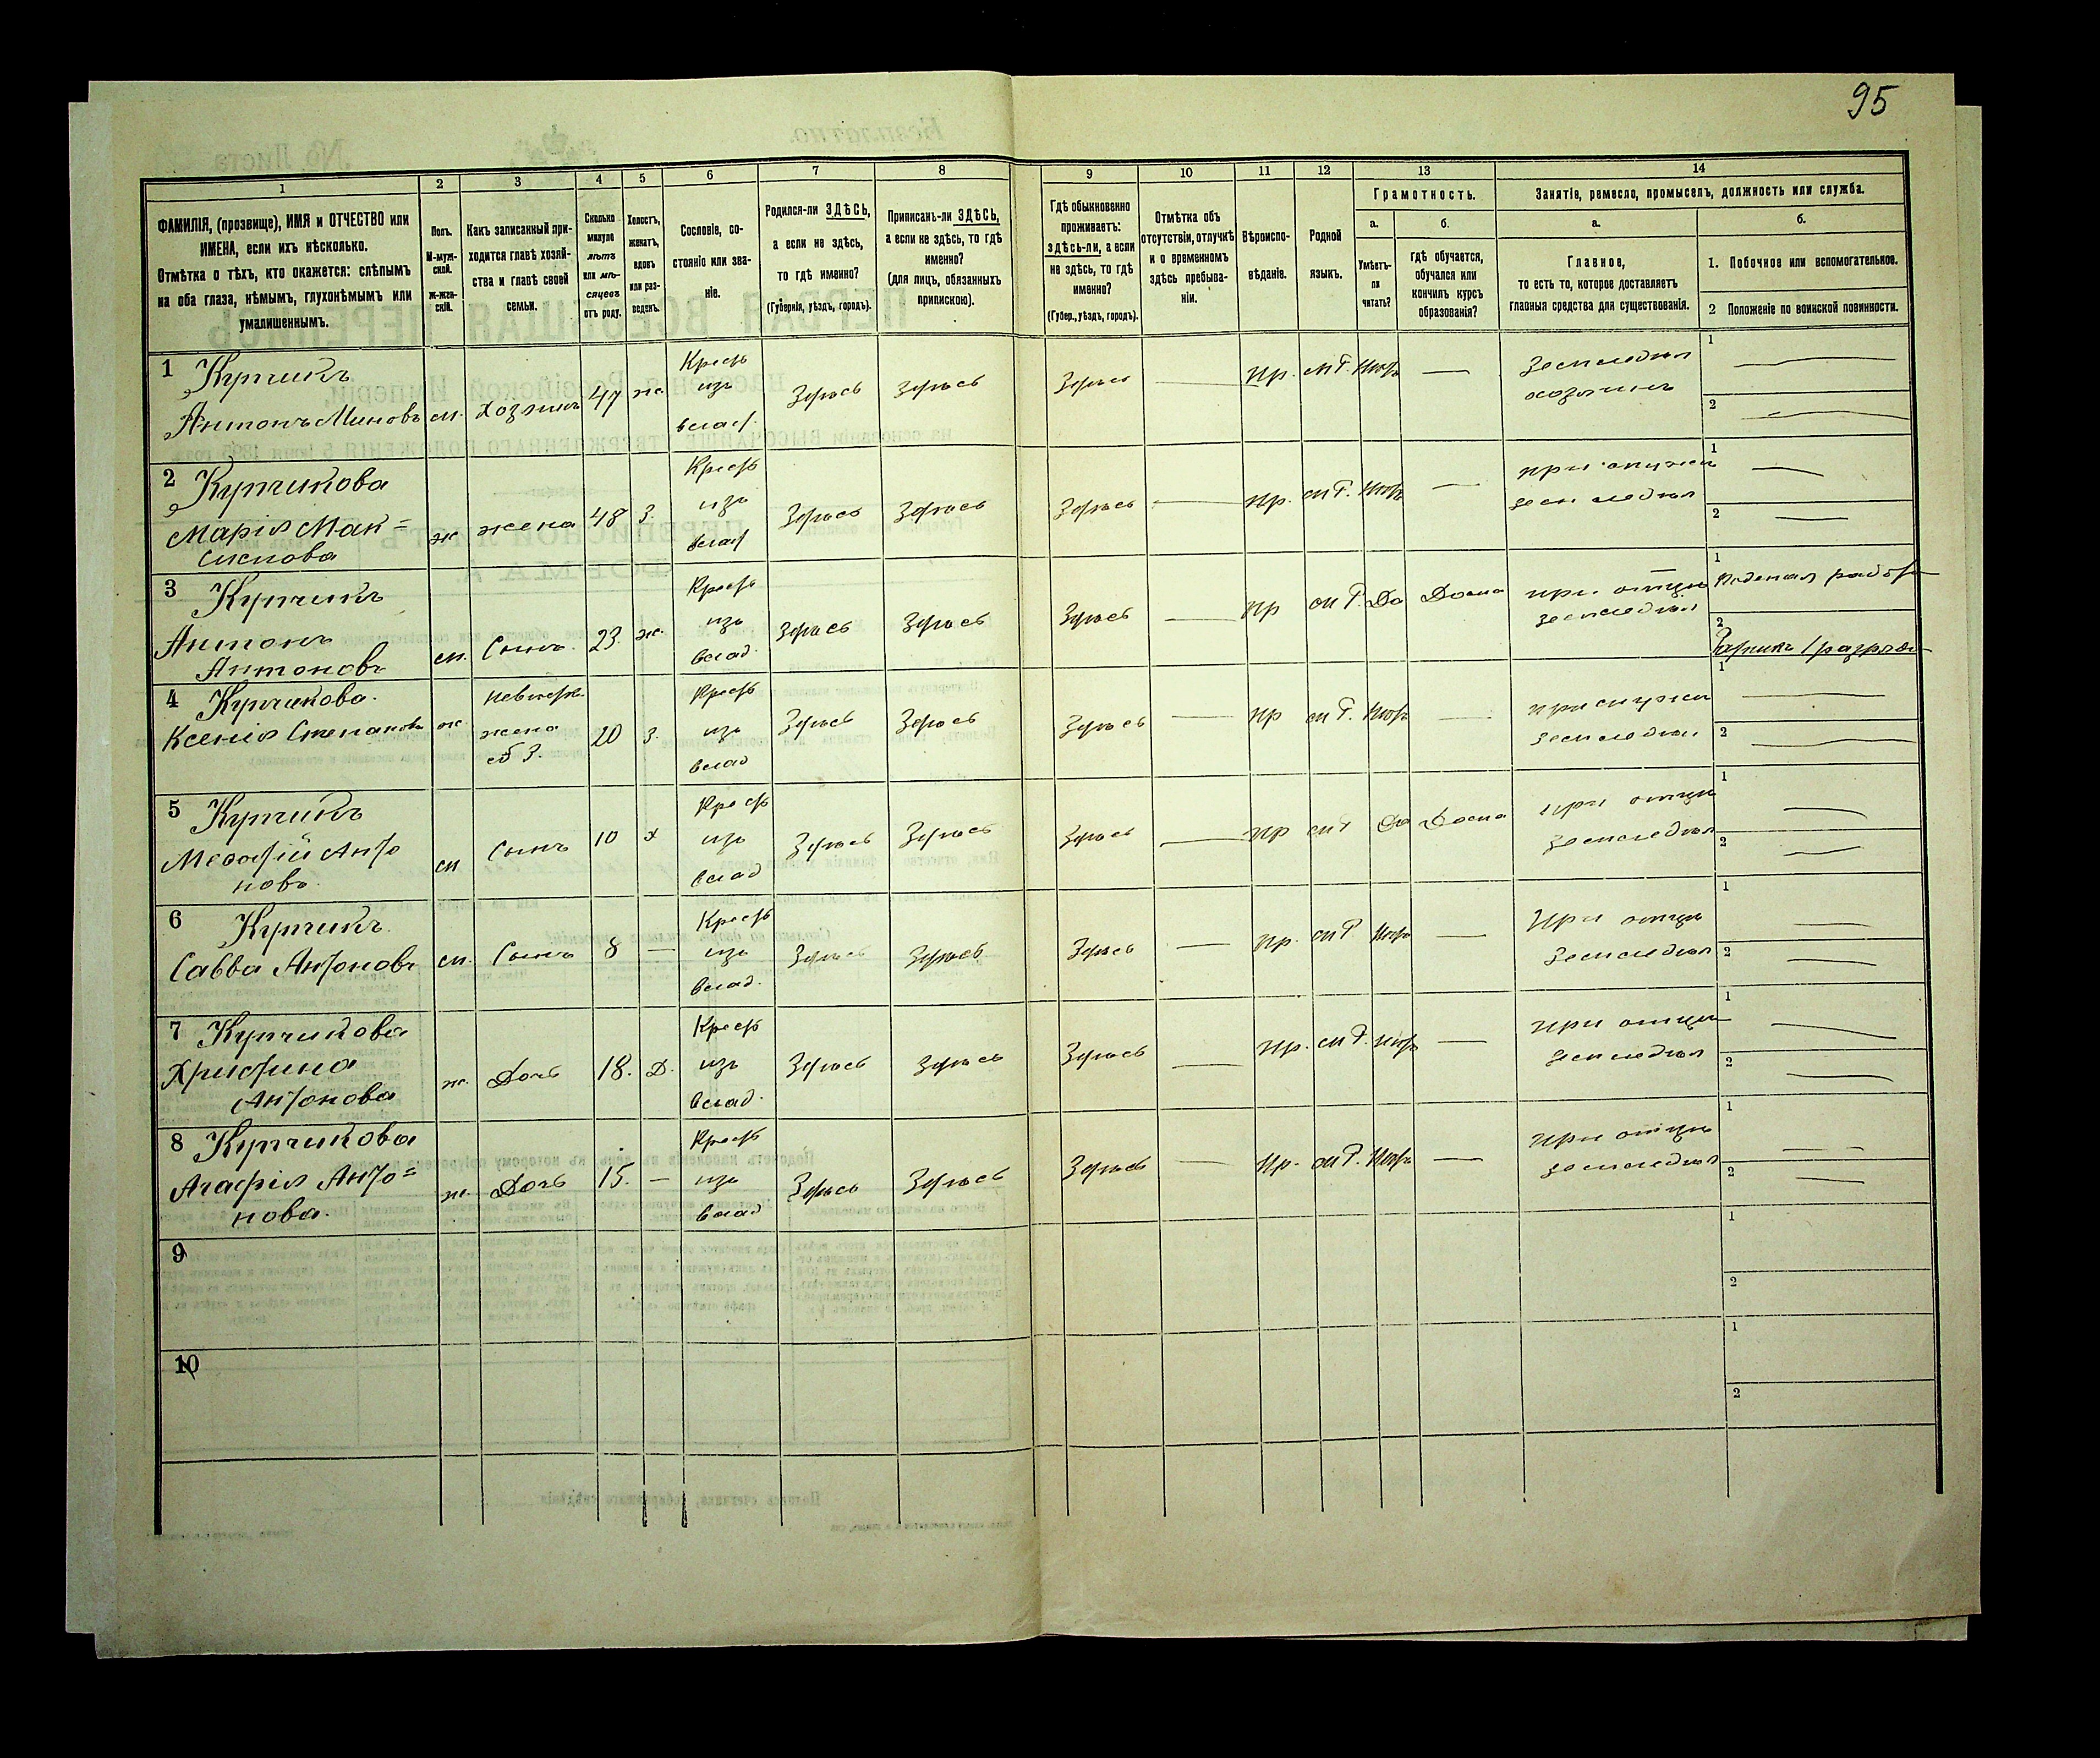 95
1 2 3 4 5 6 7 8 9 10 11 12 13 14
ФАМИЛІЯ, (прозвище), ИМЯ и ОТЧЕСТВО или
ИМЕНА, если ихъ нѣсколько.
Отмѣтка о тѣхъ, кто окажется: слѣпымъ
на оба глаза, нѣмымъ, глухонѣмымъ или
умалишеннымъ.
Полъ.
М-муж-
ской.
Ж-жен-
скій.
Какъ записанный при-
ходится главѣ хозяй-
ства и главѣ своей
семьи.
Сколько
минуло
лѣтъ
или мѣ-
сяцевъ
отъ роду.
Холостъ,
женатъ,
вдовъ
или раз-
веденъ.
Сословіе, со-
стояніе или зва-
ніе.
Родился-ли ЗДѢСЬ,
а если не здѣсь,
то гдѣ именно?
(Губернія, уѣздъ, городъ).
Приписанъ-ли ЗДѢСЬ,
а если не здѣсь, то гдѣ
именно?
(для лицъ, обязанныхъ
припискою).
Гдѣ обыкновенно
проживаетъ:
здѣсь-ли, а если
не здѣсь, то гдѣ
именно?
(Губер., уѣздъ, городъ).
Отмѣтка объ
отсутствіи, отлучкѣ
и о временномъ
здѣсь пребыва-
ніи.
Вѣроиспо-
вѣданіе.
Родной
языкъ.
Грамотность.
а.
Умѣетъ-
ли
читать?
б.
гдѣ обучается,
обучался или
кончилъ курсъ
образованія?
Занятія, ремесло, промыселъ, должность или служба.
а.
Главное,
то есть то, которое доставляетъ
главныя средства для существованія.
б.
1. Побочное или вспомогательное.
2 Положеніе по воинской повинности.
1 Купчикъ
Антонъ Миновъ м. Хозяинъ 47 ж. Крест
изъ
влад. Здѣсь Здѣсь Здѣсь — Пр. мР. Нѣтъ — Земледѣл
хозяинъ
1 —
2 —
2 Купчикова
Марія Мак=
симова ж жена 48 З. Крест
изъ
влад Здѣсь Здѣсь Здѣсь — Пр. мР. Нѣтъ — при мужѣ
земледѣл
1 —
2 —
3 Купчикъ
Антонъ
Антоновъ м. Сынъ. 23. ж. Крест
изъ
влад. Здѣсь Здѣсь Здѣсь — Пр мР. Да Дома при отцѣ
земледѣл
1
2
4 Купчикова.
Ксенія Степанова ж. невѣстк.
жена
№ 3. 20 З. Крест
изъ
влад Здѣсь Здѣсь Здѣсь — Пр мР. Нѣтъ — при мужѣ
земледѣл
1 —
2 —
5 Купчикъ
Антоновъ. м Сынъ 10 х Крест
изъ
влад Здѣсь Здѣсь Здѣсь — Пр мР Да Дома при отцѣ
земледѣл
1 —
2 —
6 Купчикъ
Савва Антоновъ м. Сынъ 8 — Крест
изъ
влад. Здѣсь Здѣсь Здѣсь — Пр. мР Нѣтъ — При отцѣ
земледѣл
1 —
2 —
7 Купчикова
Христина
Антонова ж. Дочь 18. Д. Крест
изъ
влад. Здѣсь Здѣсь Здѣсь — Пр. мР. Нѣтъ — при отцѣ
земледѣл
1 —
2 —
8 Купчикова
Агафія Анто=
нова. ж. Дочь 15. — Крест
изъ
влад Здѣсь Здѣсь Здѣсь — Пр. мР. Нѣтъ — при отцѣ
земледѣл
1 —
2 —
9
1
2
10
1
2